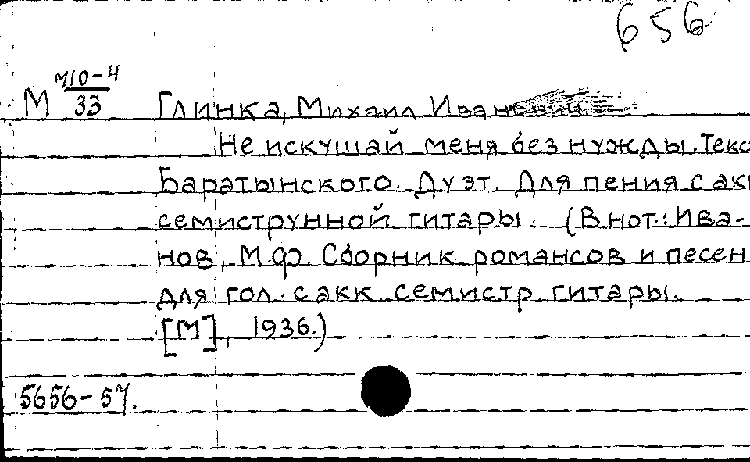 656
М М10-4
33
Глинка, Михаил Иванович
Не искушай меня без нужды. Текс
Баратынского. Дуэт. Для пения с акк
семиструнной гитары. (В нот.: Ива-
нов, М.Ф. Сборник романсов и песен
для гол. с акк. семистр. гитары.
[М], 1936.)
5656-57.